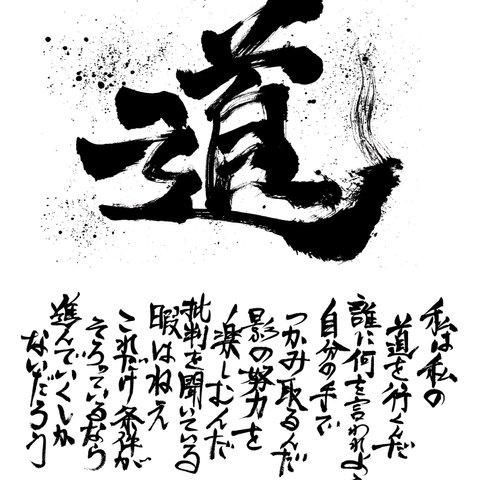 道
私は私の
道を行くんだ
誰に何を言われよう
自分の手で
つかみ取るんだ
影の努力を
楽しむんだ
批判を聞いている
暇はねえ
これだけ条件が
そろっているなら
進んでいくしか
ないだろう